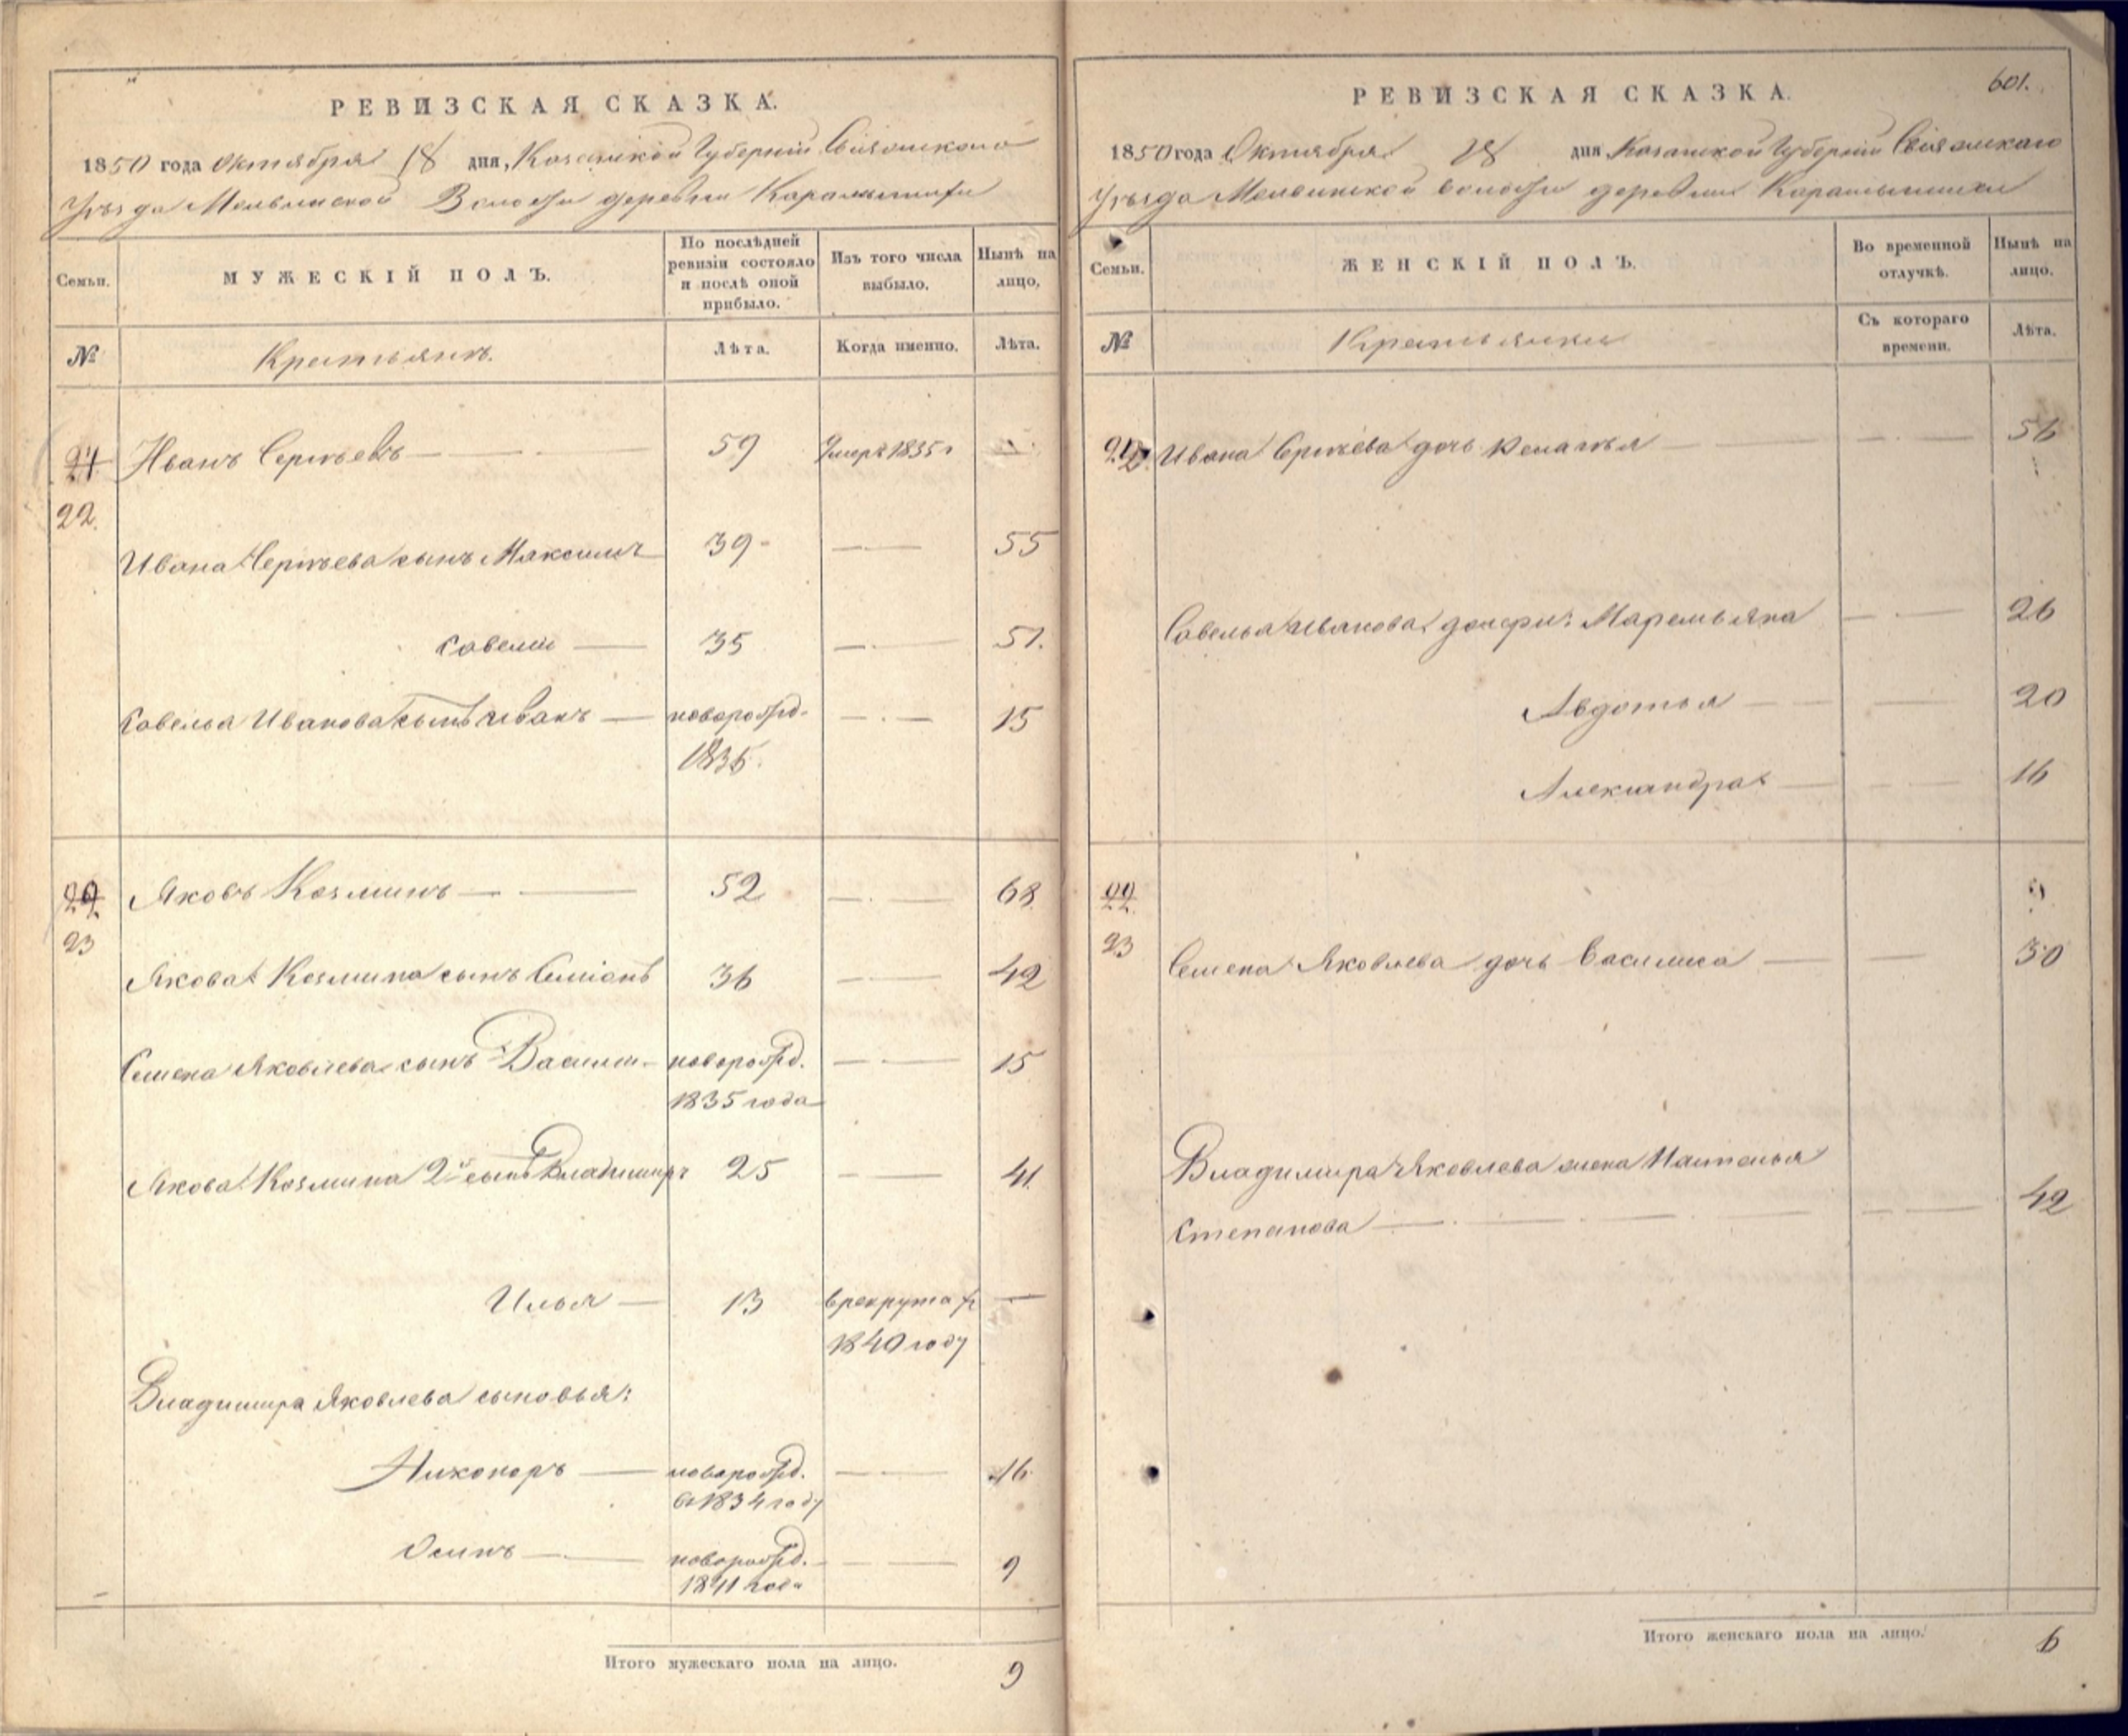 РЕВИЗСКАЯ СКАЗКА.
1850 года Октября 18 дня, Казанской Губернiи Свiяжскаго
Уѣзда Волости деревни Карамышихи
Семьи.
МУЖЕСКIЙ ПОЛЪ.
По послѣдней ревизiи состояло и послѣ оной прибыло.
Изъ того числа выбыло.
Нынѣ на лицо,
№
Крестьянъ.
Лѣта.
Когда именно.
Лѣта.
21 Иванъ Сергѣевъ 59 Умеръ 1835 г
22.
Ивана Сергѣева сынъ Максимъ 39 55
Савелiй 35 51.
Савелья Иванова сынъ Иванъ новорожд. 15
1835.
22. Яковъ Козминъ 52 68
23
Якова Козмина сынъ Семiонъ 36 42
Семена Яковлева сынъ Василiй новорожд. 15
1835 года
Якова Козмина 2й сынъ Владимиръ 25 41
Илья 13 в рекрута
1840 году
Владимира Яковлева сыновья:
Никоноръ новорожд. 16
в 1834 году
Осипъ новорожд. 9
1841 года
Итого мужескаго пола на лицо. 9
601.
РЕВИЗСКАЯ СКАЗКА.
1850 года Октября 18 дня Казанской Губернiи Свiяжскаго
Уѣзда волости деревни Карамышихи
Семьи.
ЖЕНСКIЙ ПОЛЪ.
Во временной отлучкѣ.
Нынѣ на лицо.
№
Крестьянки
Съ котораго времени.
Лѣта.
Ивана Сергѣева дочь 56
Савелья Иванова дочери: Маремьяна 26
Авдотья 20
Александра 16
22
23
Семена Яковлева дочь Василиса 30
Владимира Яковлева жена Настасья
Степанова 42
Итого женскаго пола на лицо. 6